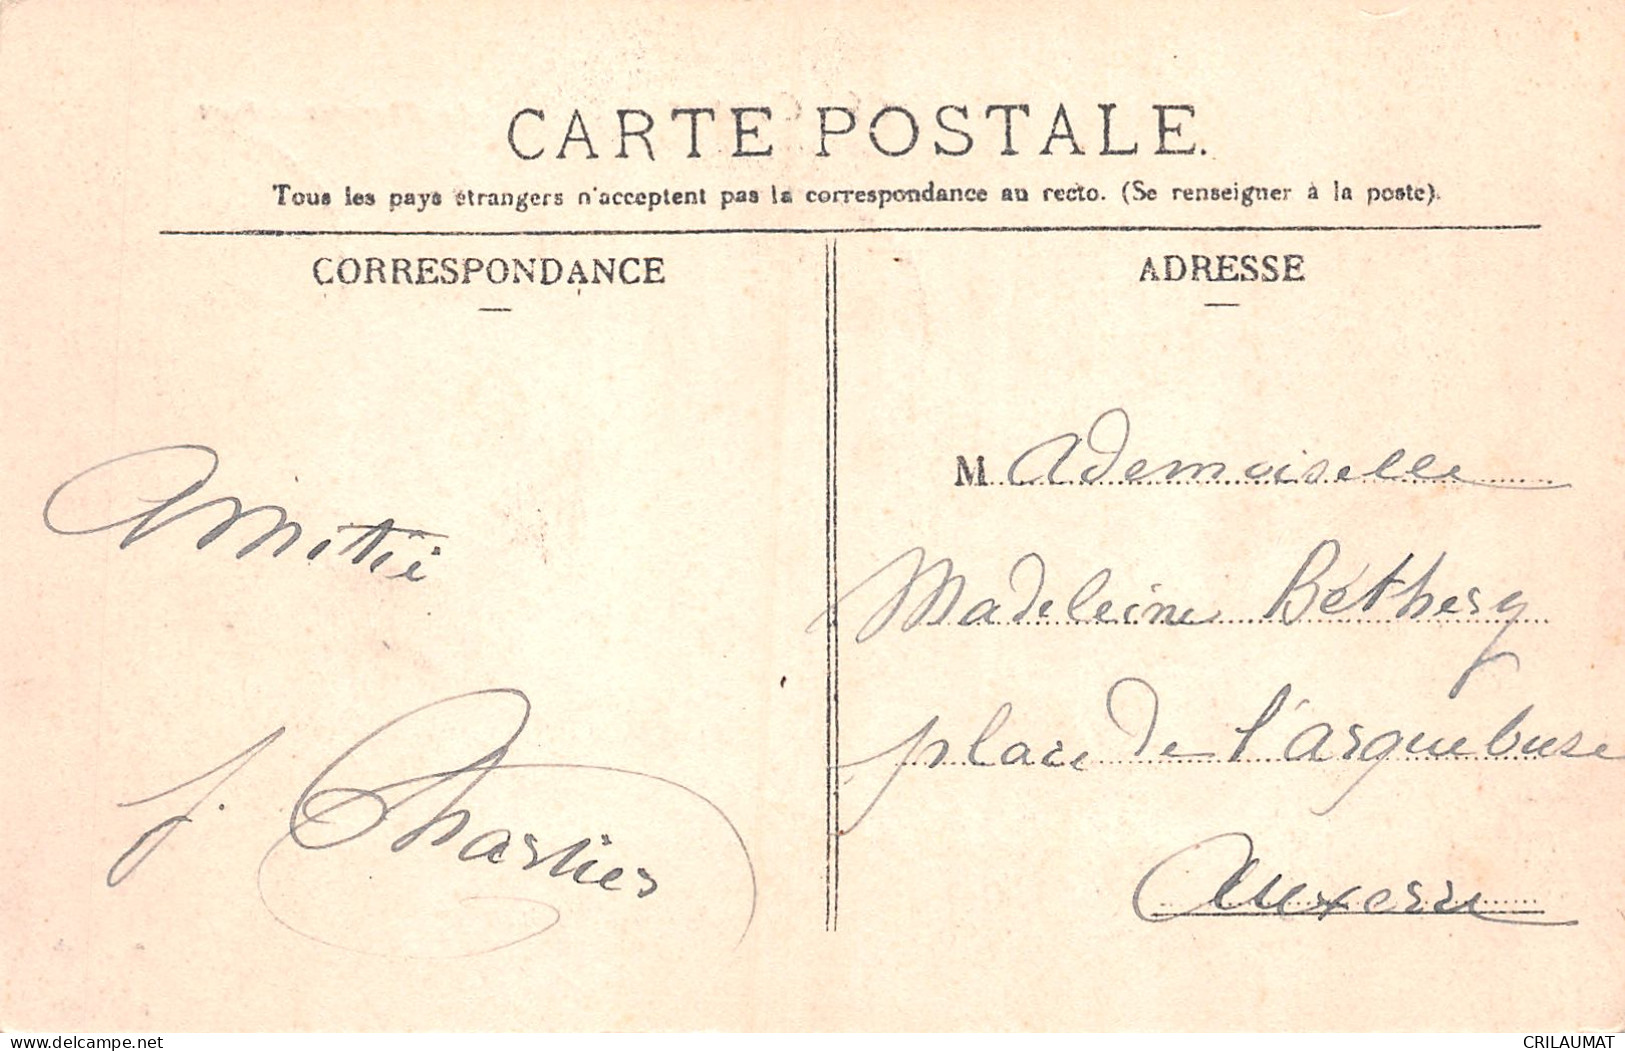 CARTE POSTALE.
Tous les pays étrangers n'acceptent pas la correspondance au recto. (Se renseigner à la poste).
CORRESPONDANCE
Amitié
J. Chartier
ADRESSE
Mademoiselle
Madeleine Béthery
place de l'arquebuse
Auxerre
delcampe.net
CRILAUMAT